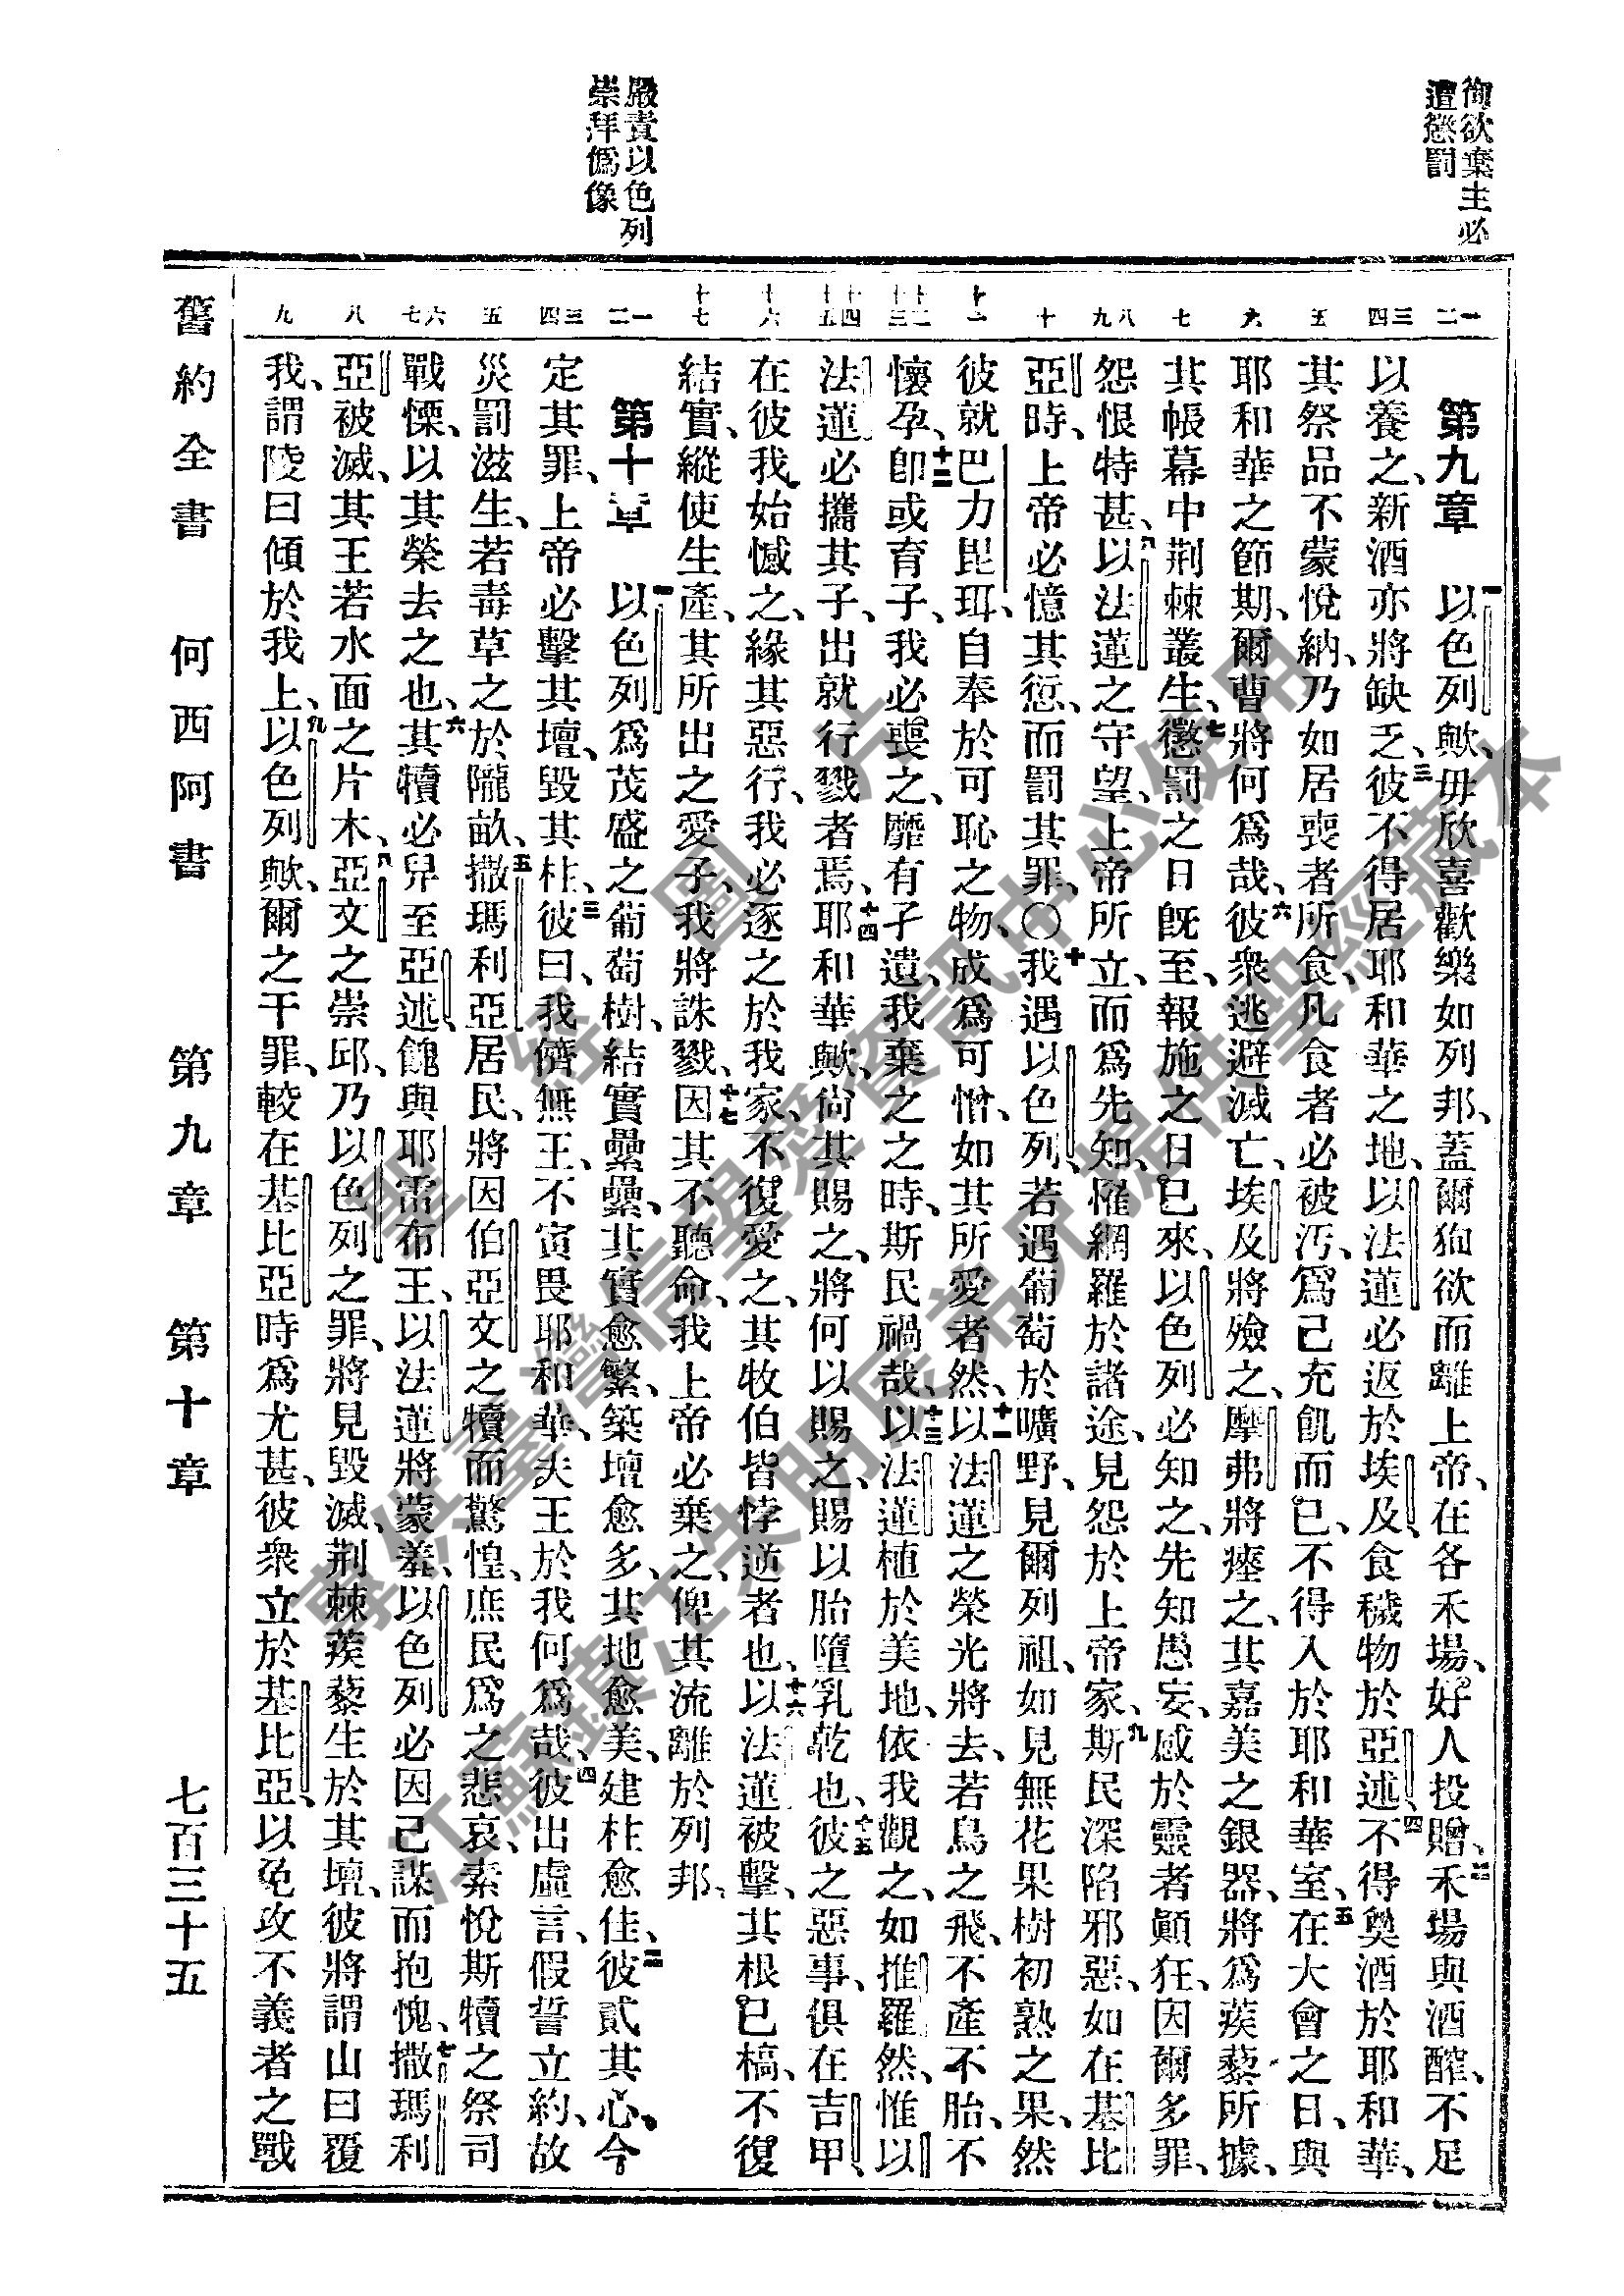 徇欲棄主必
遭懲罰
嚴責以色列
崇拜僞像
一二
三四
五
六
七
八九
十
十一
十二十三
十四十五
十六
十七
一二
三四
五
六七
八
九
第九章 一以色列歟、毋欣喜歡樂如列邦、蓋爾狥欲而離上帝、在各禾場、好人投贈、二禾場與酒醡、不足
以養之、新酒亦將缺乏、三彼不得居耶和華之地、以法蓮必返於埃及、食穢物於亞述、四不得奠酒於耶和華、
其祭品不蒙悅納、乃如居喪者所食、凡食者必被汚、爲己充飢而已、不得入於耶和華室、五在大會之日、與
耶和華之節期、爾曹將何爲哉、六彼衆逃避滅亡、埃及將殮之、摩弗將瘞之、其嘉美之銀器、將爲蒺藜所據、
其帳幕中荆棘叢生、七懲罰之日旣至、報施之日已來、以色列必知之、先知愚妄、感於靈者顚狂、因爾多罪、
怨恨特甚、八以法蓮之守望、上帝所立、而爲先知、罹網羅於諸途、見怨於上帝家、九斯民深陷邪惡、如在基比
亞時、上帝必憶其愆、而罰其罪、〇十我遇以色列、若遇葡萄於曠野、見爾列祖、如見無花果樹初熟之果、然
彼就巴力毘珥、自奉於可恥之物、成爲可憎、如其所愛者然、十一以法蓮之榮光將去、若鳥之飛、不產不胎、不
懷孕、十二卽或育子、我必喪之、靡有孑遺、我棄之之時、斯民禍哉、十三以法蓮植於美地、依我觀之、如推羅然、惟以
法蓮必攜其子、出就行戮者焉、十四耶和華歟、尙其賜之、將何以賜之、賜以胎墮乳乾也、十五彼之惡事、俱在吉甲、
在彼我始憾之、緣其惡行、我必逐之於我家、不復愛之、其牧伯皆悖逆者也、十六以法蓮被擊、其根已槁、不復
結實、縱使生產、其所出之愛子、我將誅戮、十七因其不聽命、我上帝必棄之、俾其流離於列邦、
第十章 一以色列爲茂盛之葡萄樹、結實纍纍、其實愈繁、築壇愈多、其地愈美、建柱愈佳、二彼貳其心、今
定其罪、上帝必擊其壇、毀其柱、三彼曰、我儕無王、不寅畏耶和華、夫王於我何爲哉、四彼出虛言、假誓立約、故
災罰滋生、若毒草之於隴畝、五撒瑪利亞居民、將因伯亞文之犢而驚惶、庶民爲之悲哀、素悅斯犢之祭司
戰慄、以其榮去之也、六其犢必舁至亞述、餽與耶雷布王、以法蓮將蒙羞、以色列必因己謀而抱愧、七撒瑪利
亞被滅、其王若水面之片木、八亞文之崇邱、乃以色列之罪、將見毀滅、荆棘蒺藜生於其壇、彼將謂山曰覆
我、謂陵曰傾於我上、九以色列歟、爾之干罪、較在基比亞時爲尤甚、彼衆立於基比亞、以免攻不義者之戰
舊約全書 何西阿書 第九章 第十章 七百三十五
聖經圖片
專供臺灣信望愛資訊中心使用
江蘇鎮江朱明辰弟兄提供聖經藏本